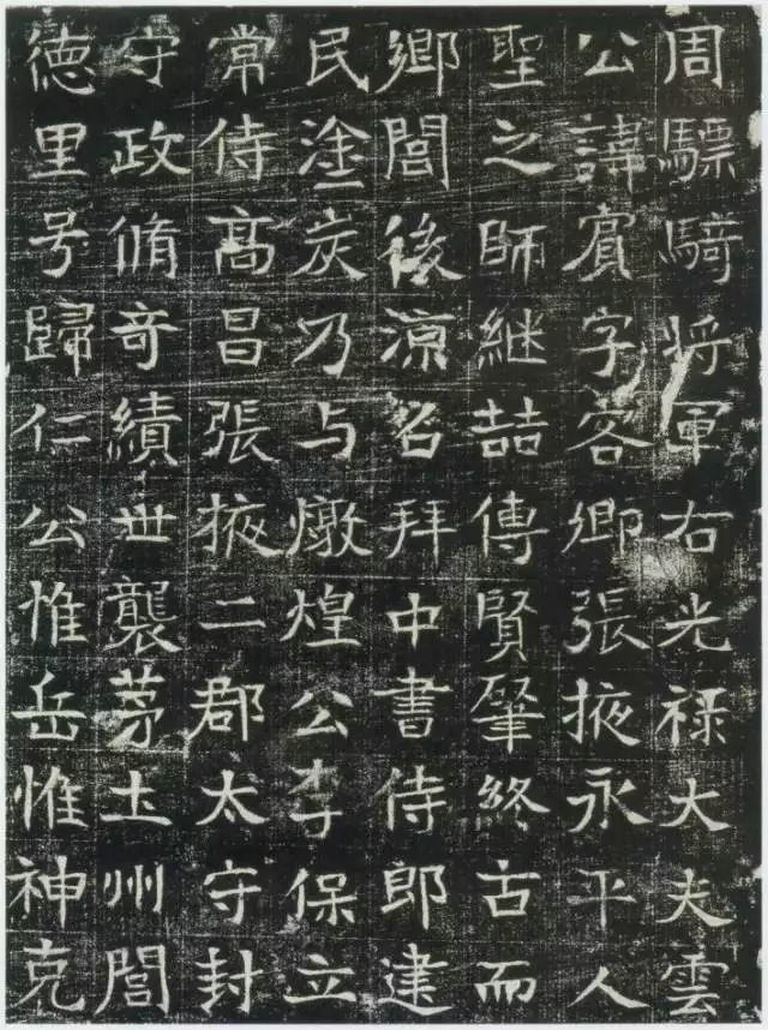 周驃騎将軍右光禄大夫雲
公諱賔字客卿張掖永平人
聖之師継喆傳賢肇終古而
鄉閭後涼召拜中書侍郎建
民塗炭乃与燉煌公李保立
常侍髙昌張掖二郡太守封
守政脩竒績世襲茅土州閭
徳里号歸仁公惟岳惟神克